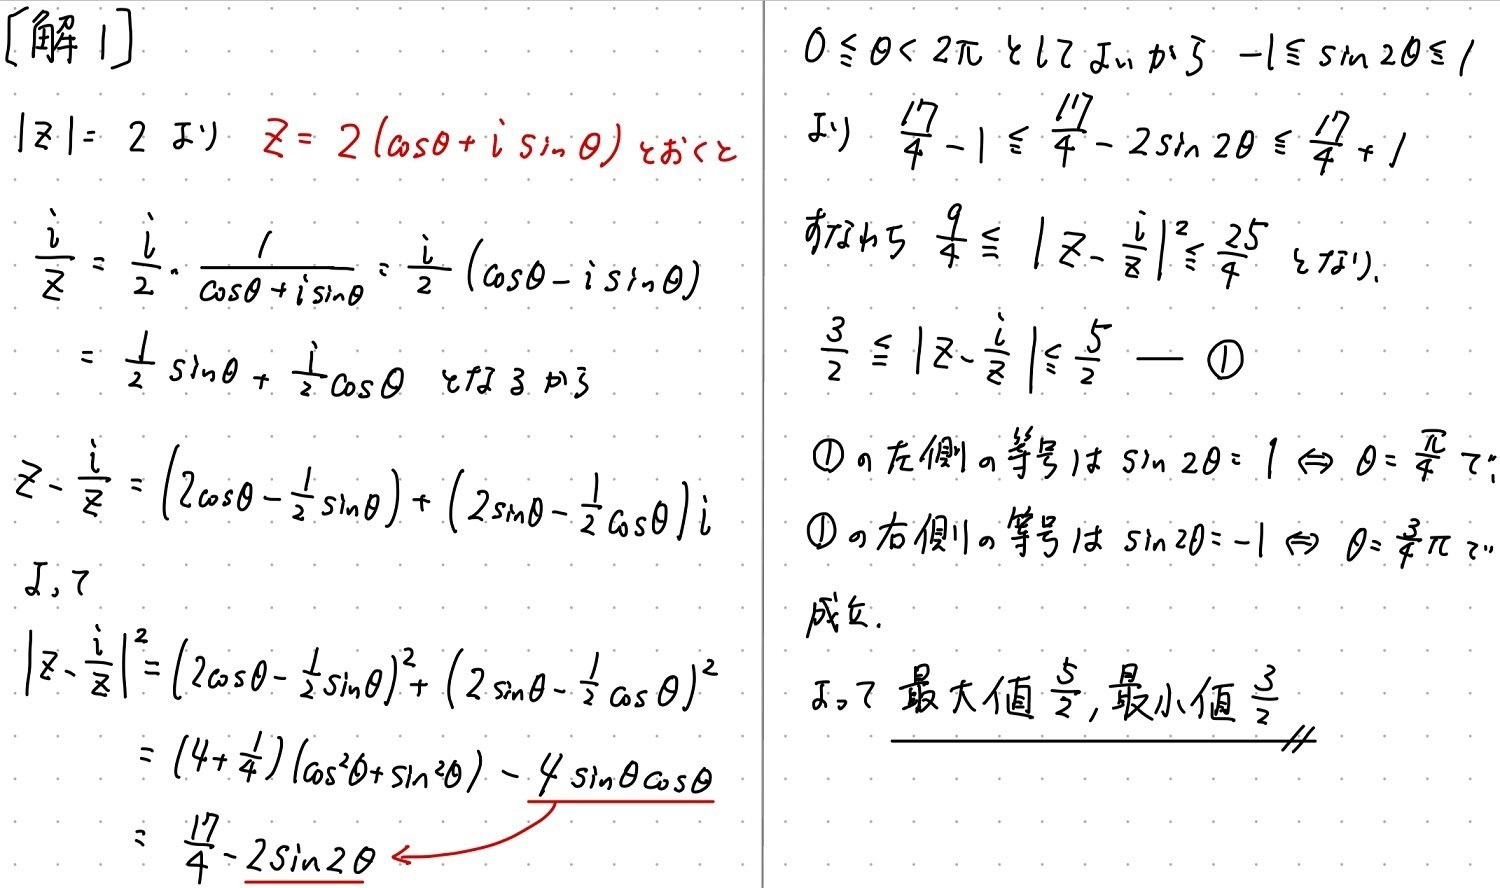 [解1]
|z| = 2 より z = 2(cosθ + i sinθ) とおくと
i/z = i/2 · 1/(cosθ + i sinθ) = i/2 (cosθ − i sinθ)
= 1/2 sinθ + i/2 cosθ となるから
z − i/z = (2cosθ − 1/2 sinθ) + (2sinθ − 1/2 cosθ) i
よって
|z − i/z|² = (2cosθ − 1/2 sinθ)² + (2sinθ − 1/2 cosθ)²
= (4 + 1/4)(cos²θ + sin²θ) − 4 sinθ cosθ
= 17/4 − 2sin2θ
0 ≦ θ < 2π としてよいから −1 ≦ sin2θ ≦ 1
より 17/4 − 1 ≦ 17/4 − 2sin2θ ≦ 17/4 + 1
すなわち 9/4 ≦ |z − i/z|² ≦ 25/4 となり.
3/2 ≦ |z − i/z| ≦ 5/2 — ①
①の左側の等号は sin2θ = 1 ⇔ θ = π/4 で
①の右側の等号は sin2θ = −1 ⇔ θ = 3/4 π で
成立.
よって 最大値 5/2, 最小値 3/2